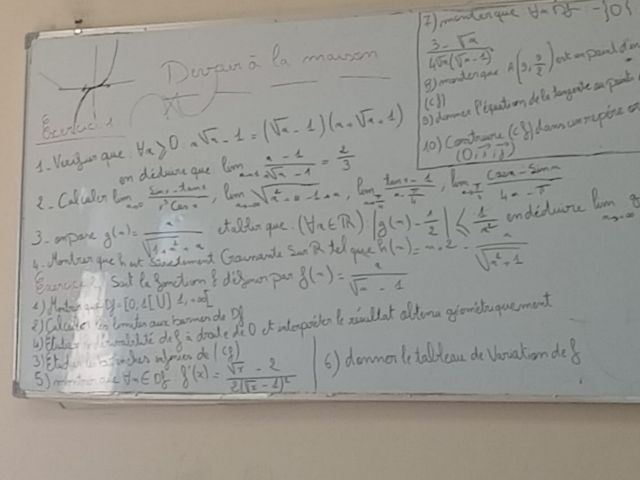 Devoir à la maison
Exercice 1
1 - Verifier que ∀x ≥ 0 x√x - 1 = (√x - 1)(x + √x + 1)
en déduire que lim x→1 (x - 1)/(x√x - 1) = 2/3
2 - Calculer lim x→0 (sin x - tan x)/(x³ cos x), lim √(x² - x - 1) + x, lim x→π/4 (tan x - 1)/(x - π/4), lim x→π/4 (cos x - sin x)/(4x - π)
3 - on pose g(x) = x/(√(1 + x²) + x) et ablir que (∀x ∈ ℝ) |g(x) - 1/2| ≤ 1/x² en déduire lim g
4 - Montrer que h est strictement Croissante Sur ℝ tel que h(x) = x + 2 - x/√(x² + 1)
Exercice 2 Soit la fonction f définie par f(x) = x/(√x - 1)
1) Montrer que Df = [0, 1[ U ] 1, +∞[
2) Calculer les limites aux bornes de Df
4) Etudier la dérivabilité de f à droite de 0 et interpréter le résultat obtenu géométriquement
3) Etudier les branches infinies de (Cf)
5) montrer que ∀x ∈ Df f'(x) = (√x - 2)/(2(√x - 1)²)
6) donner le tableau de Variation de f
7) montrer que ∀x Df - {0}
(3 - √x)/(4√x(√x - 1)
8) montrer que A(9, 9/2) est un point d'in
(Cf)
9) donner l'équation de la tangente au point
10) Construire (Cf) dans un repère
(0, i, j)